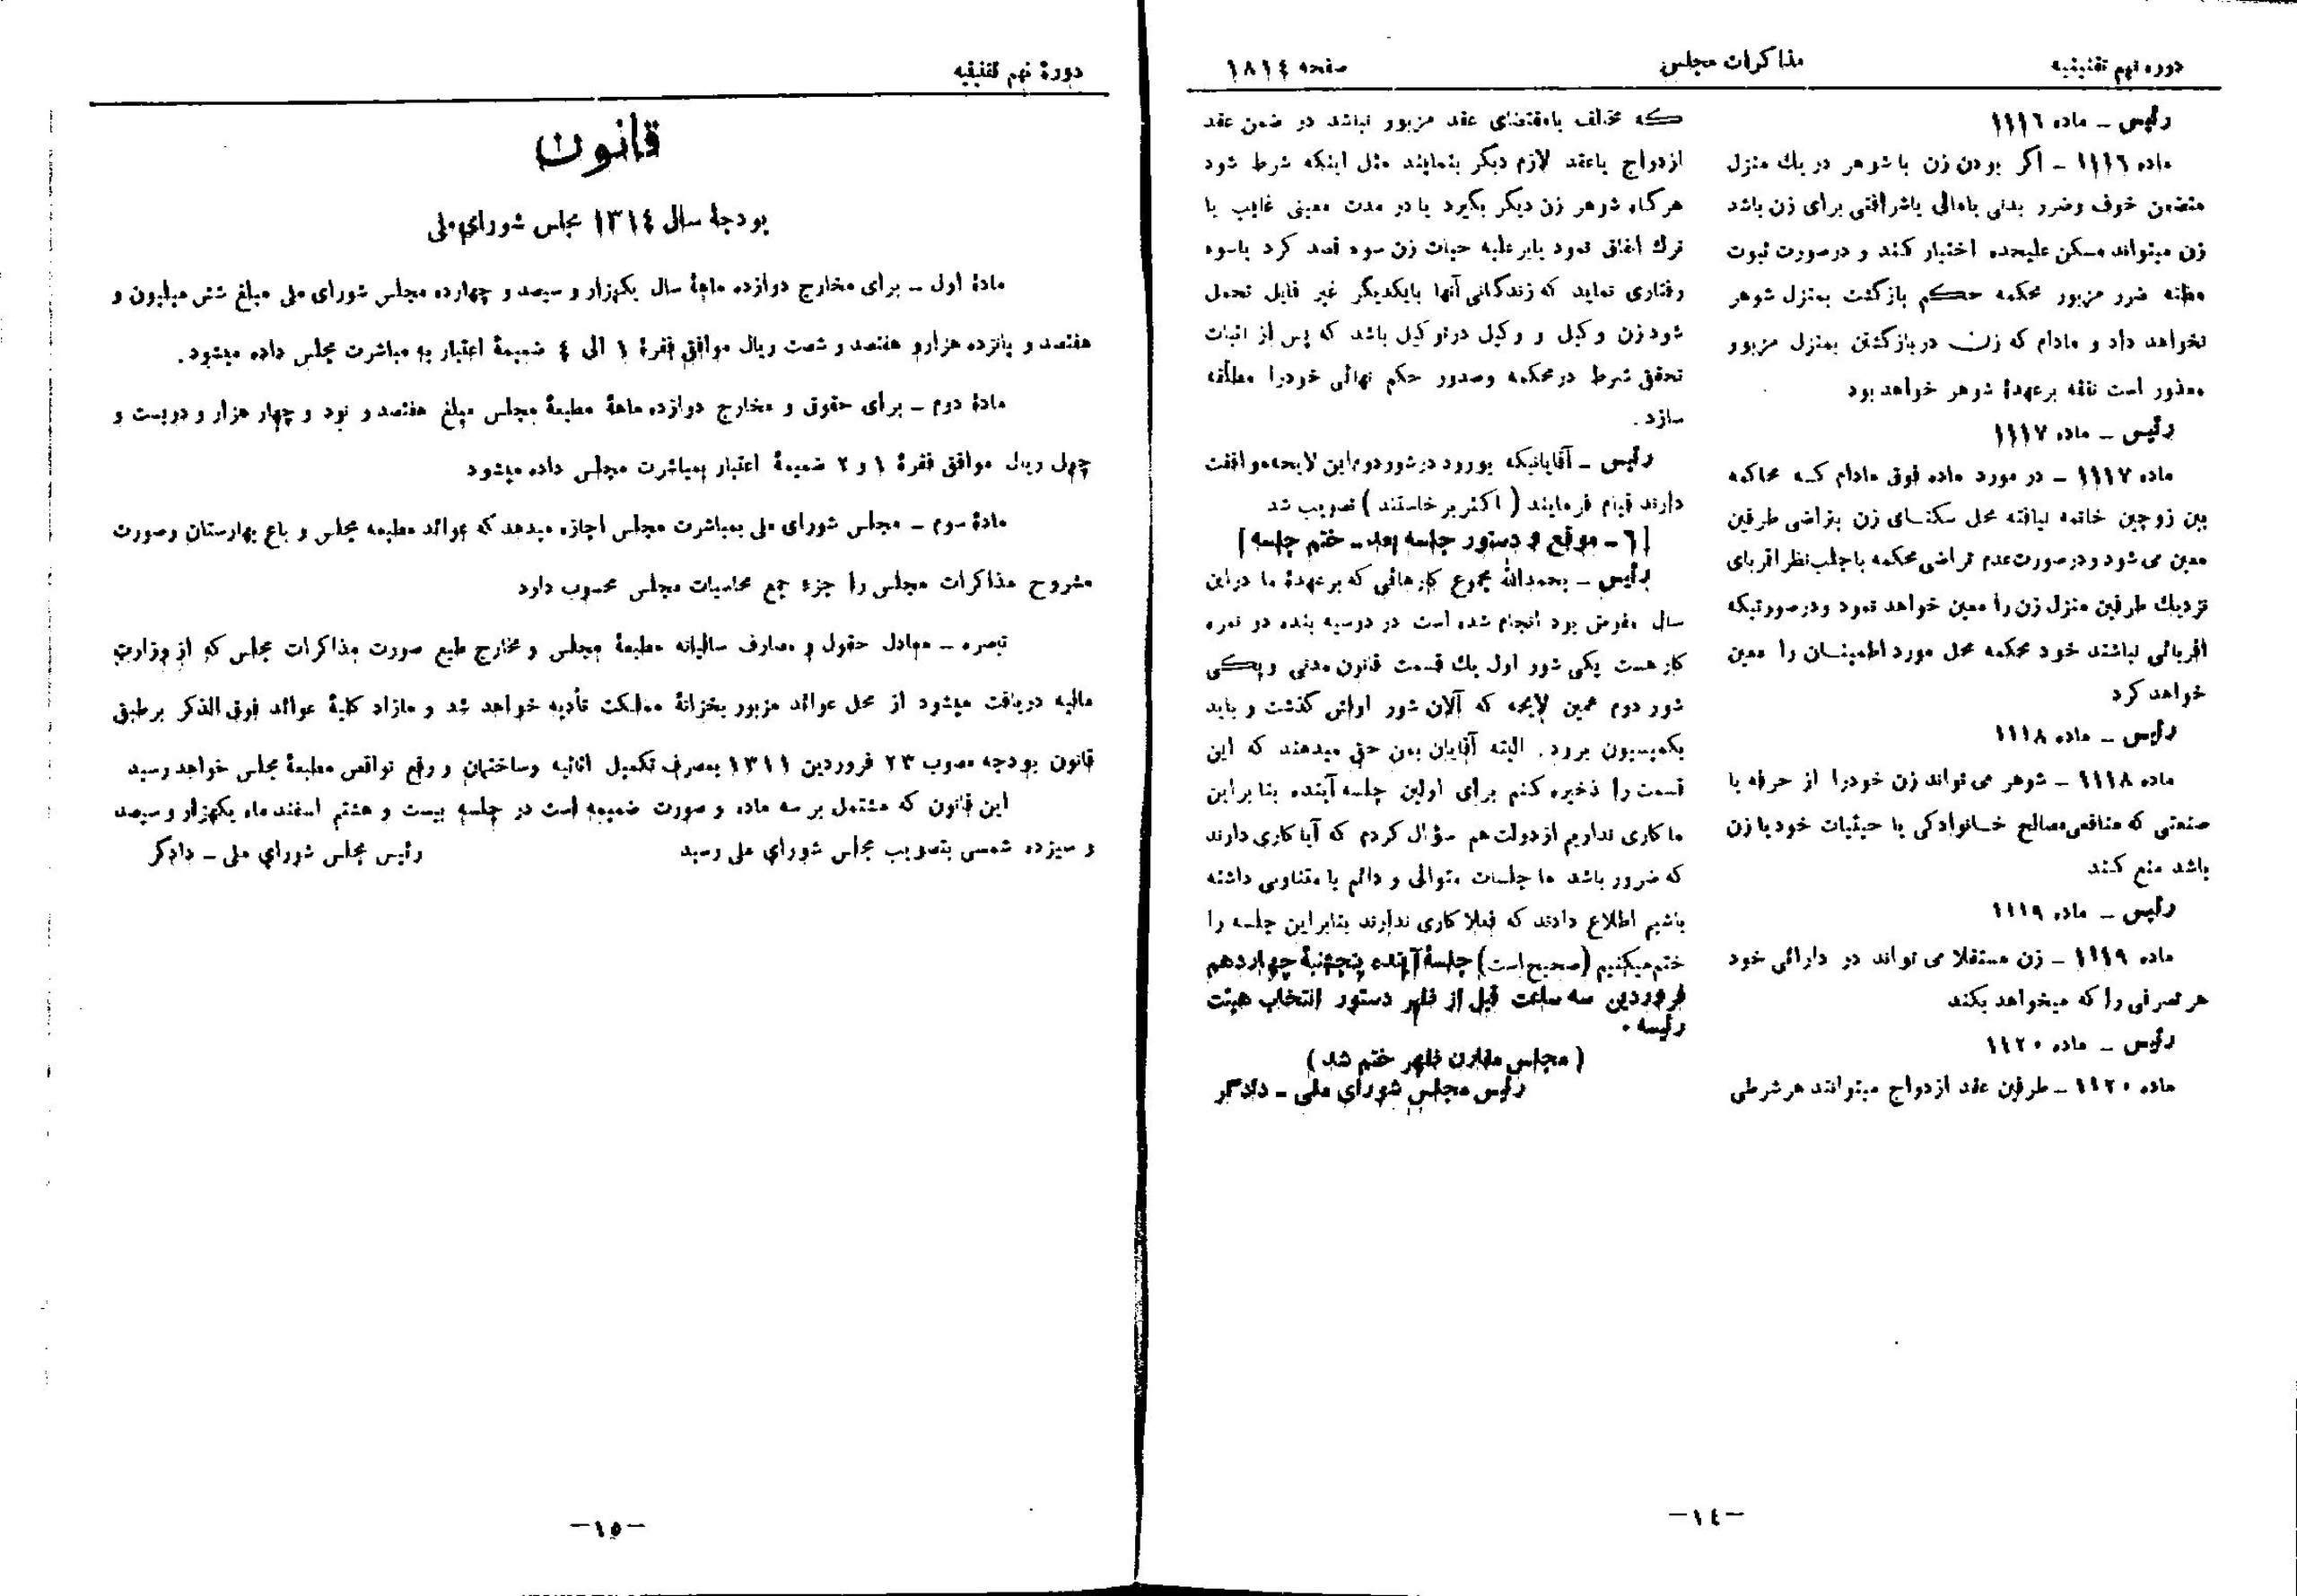 دوره نهم تقنینیه
مذاکرات مجلس
صفحه ۱۸۱٤
رئیس ـ ماده ۱۱۱٦
ماده ۱۱۱٦ ـ اگر بودن زن با شوهر در یك منزل
متضمن خوف وضرر بدنی یامالی یاشرافتی برای زن باشد
زن میتواند مسکن علیحده اختیار کند و درصورت ثبوت
مظنه ضرر مزبور محکمه حکم بازگشت بمنزل شوهر
نخواهد داد و مادام که زن دربازگشتن بمنزل مزبور
معذور است نفقه برعهدهٔ شوهر خواهد بود
رئیس ـ ماده ۱۱۱۷
ماده ۱۱۱۷ ـ در مورد ماده فوق مادام که محاکمه
بین زوجین خاتمه نیافته محل سکنای زن بتراضی طرفین
معین می شود و درصورت عدم تراضی محکمه با جلب نظر اقربای
نزدیك طرفین منزل زن را معین خواهد نمود و درصورتیکه
اقربائی نباشند خود محکمه محل مورد اطمینان را معین
خواهد کرد
رئیس ـ ماده ۱۱۱۸
ماده ۱۱۱۸ ـ شوهر می تواند زن خودرا از حرفه یا
صنعتی که منافی مصالح خانوادگی یا حیثیات خود یا زن
باشد منع کند
رئیس ـ ماده ۱۱۱۹
ماده ۱۱۱۹ ـ زن مستقلا می تواند در دارائی خود
هر تصرفی را که میخواهد بکند
رئیس ـ ماده ۱۱۲۰
ماده ۱۱۲۰ ـ طرفین عقد ازدواج میتوانند هر شرطی
که مخالف بامقتضای عقد مزبور نباشد در ضمن عقد
ازدواج یاعقد لازم دیگر بنمایند مثل اینکه شرط شود
هرگاه شوهر زن دیگر بگیرد یا در مدت معینی غایب یا
ترك انفاق نمود یابرعلیه حیات زن سوء قصد کرد یاسوء
رفتاری نماید که زندگانی آنها بایکدیگر غیر قابل تحمل
شود زن وکیل و وکیل درتوکیل باشد که پس از اثبات
تحقق شرط درمحکمه وصدور حکم نهائی خودرا مطلقه
سازد .
رئیس ـ آقایانیکه بورود درشور دوم این لایحه موافقت
دارند قیام فرمایند ( اکثر برخاستند ) تصویب شد
[ ٦ ـ موقع و دستور جلسه بعد ـ ختم جلسه ]
رئیس ـ بحمدالله مجموع کارهائی که برعهدهٔ ما دراین
سال مفروض بود انجام شده است در دوسیه بنده دو نمره
کار هست یکی شور اول یك قسمت قانون مدنی ویکی
شور دوم همین لایحه که آلان شور اولش گذشت و باید
بکمیسیون برود. البته آقایان بمن حق میدهند که این
قسمت را ذخیره کنم برای اولین جلسه آینده بنابراین
ما کاری نداریم ازدولت هم سؤال کردم که آیا کاری دارند
که ضرور باشد ما جلسات متوالی و دائم یا متناوبی داشته
باشیم اطلاع دادند که فعلا کاری ندارند بنابراین جلسه را
ختم میکنیم (صحیح است) جلسهٔ آینده پنجشنبهٔ چهاردهم
فروردین سه ساعت قبل از ظهر دستور انتخاب هیئت
رئیسه .
( مجلس مقارن ظهر ختم شد )
رئیس مجلس شورای ملی ـ دادگر
ـ۱٤ـ
دورهٔ نهم تقنینیه
قانون
بودجهٔ سال ۱۳۱٤ مجلس شورای ملی
مادهٔ اول ـ برای مخارج دوازده ماههٔ سال یکهزار و سیصد و چهارده مجلس شورای ملی مبلغ شش میلیون و
هفتصد و پانزده هزارو هفتصد و شصت ریال موافق فقرهٔ ۱ الی ٤ ضمیمهٔ اعتبار به مباشرت مجلس داده میشود.
مادهٔ دوم ـ برای حقوق و مخارج دوازده ماههٔ مطبعهٔ مجلس مبلغ هفتصد و نود و چهار هزار و دویست و
چهل ریال موافق فقرهٔ ۱ و ۲ ضمیمهٔ اعتبار بمباشرت مجلس داده میشود
مادهٔ سوم ـ مجلس شورای ملی بمباشرت مجلس اجازه میدهد که عوائد مطبعه مجلس و باغ بهارستان وصورت
مشروح مذاکرات مجلس را جزء جمع محاسبات مجلس محسوب دارد
تبصره ـ معادل حقوق و مصارف سالیانه مطبعهٔ مجلس و مخارج طبع صورت مذاکرات مجلس که از وزارت
مالیه دریافت میشود از محل عوائد مزبور بخزانهٔ مملکت تأدیه خواهد شد و مازاد کلیهٔ عوائد فوق الذکر برطبق
قانون بودجه مصوب ۲۳ فروردین ۱۳۱۱ بمصرف تکمیل اثاثیه وساختمان و رفع نواقص مطبعهٔ مجلس خواهد رسید
این قانون که مشتمل بر سه ماده و صورت ضمیمه است در جلسه بیست و هشتم اسفند ماه یکهزار و سیصد
و سیزده شمسی بتصویب مجلس شورای ملی رسید
رئیس مجلس شورای ملی ـ دادگر
ـ۱٥ـ